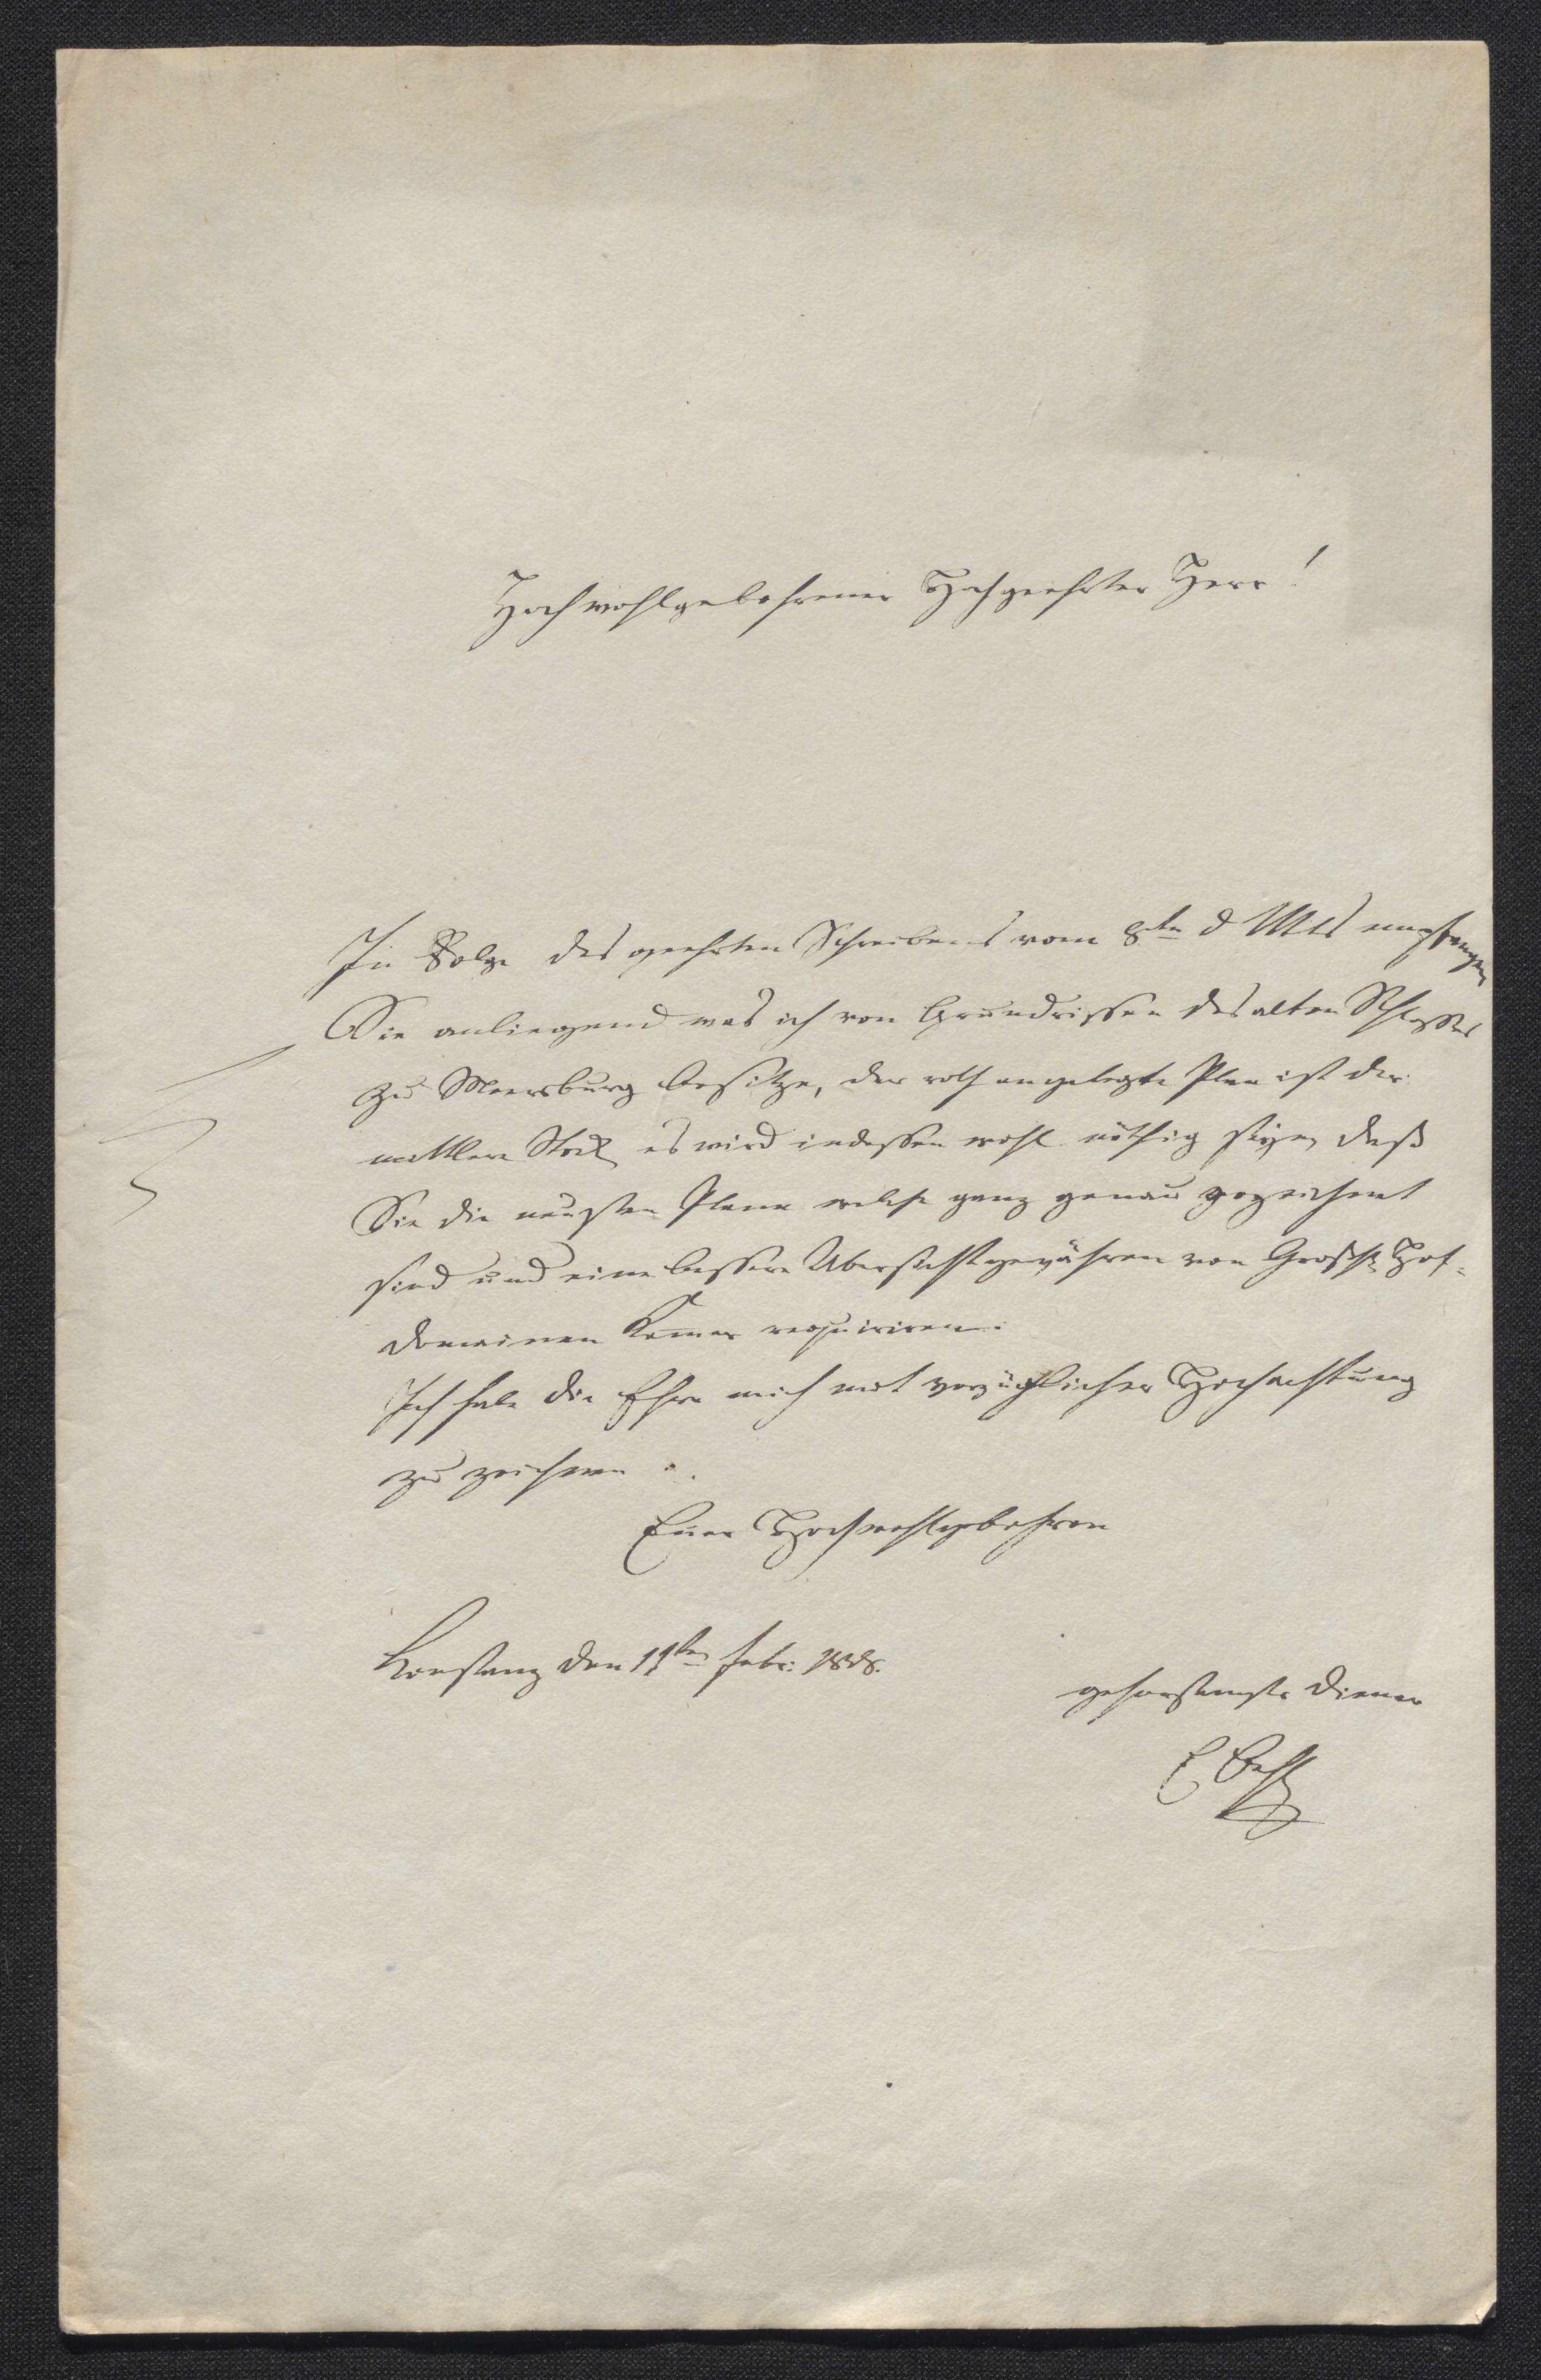 Hochwohlgebohrener Hochgeehrter Herr!
In Folge des geehrten Schreibens vom 8ten d Mts empfangen
Sie anliegend was ich von Grundrissen des alten Schlosses
zu Meersburg besitze, der roth angelegte Plan ist der
mittlere Stock es wird indessen wohl nöthig seyn, daß
Sie die neusten Plane welche ganz genau gezeichnet
sind und eine bessere Ubersicht gewähren von Grosh Hof-
domainen Kamer requiriren.
Ich habe die Ehre mich mit vorzüglicher Hochachtung
zu zeichnen
Euer Hochwohlgebohren
Konstanz den 11ten Febr: 1838.
gehorsamster Diener